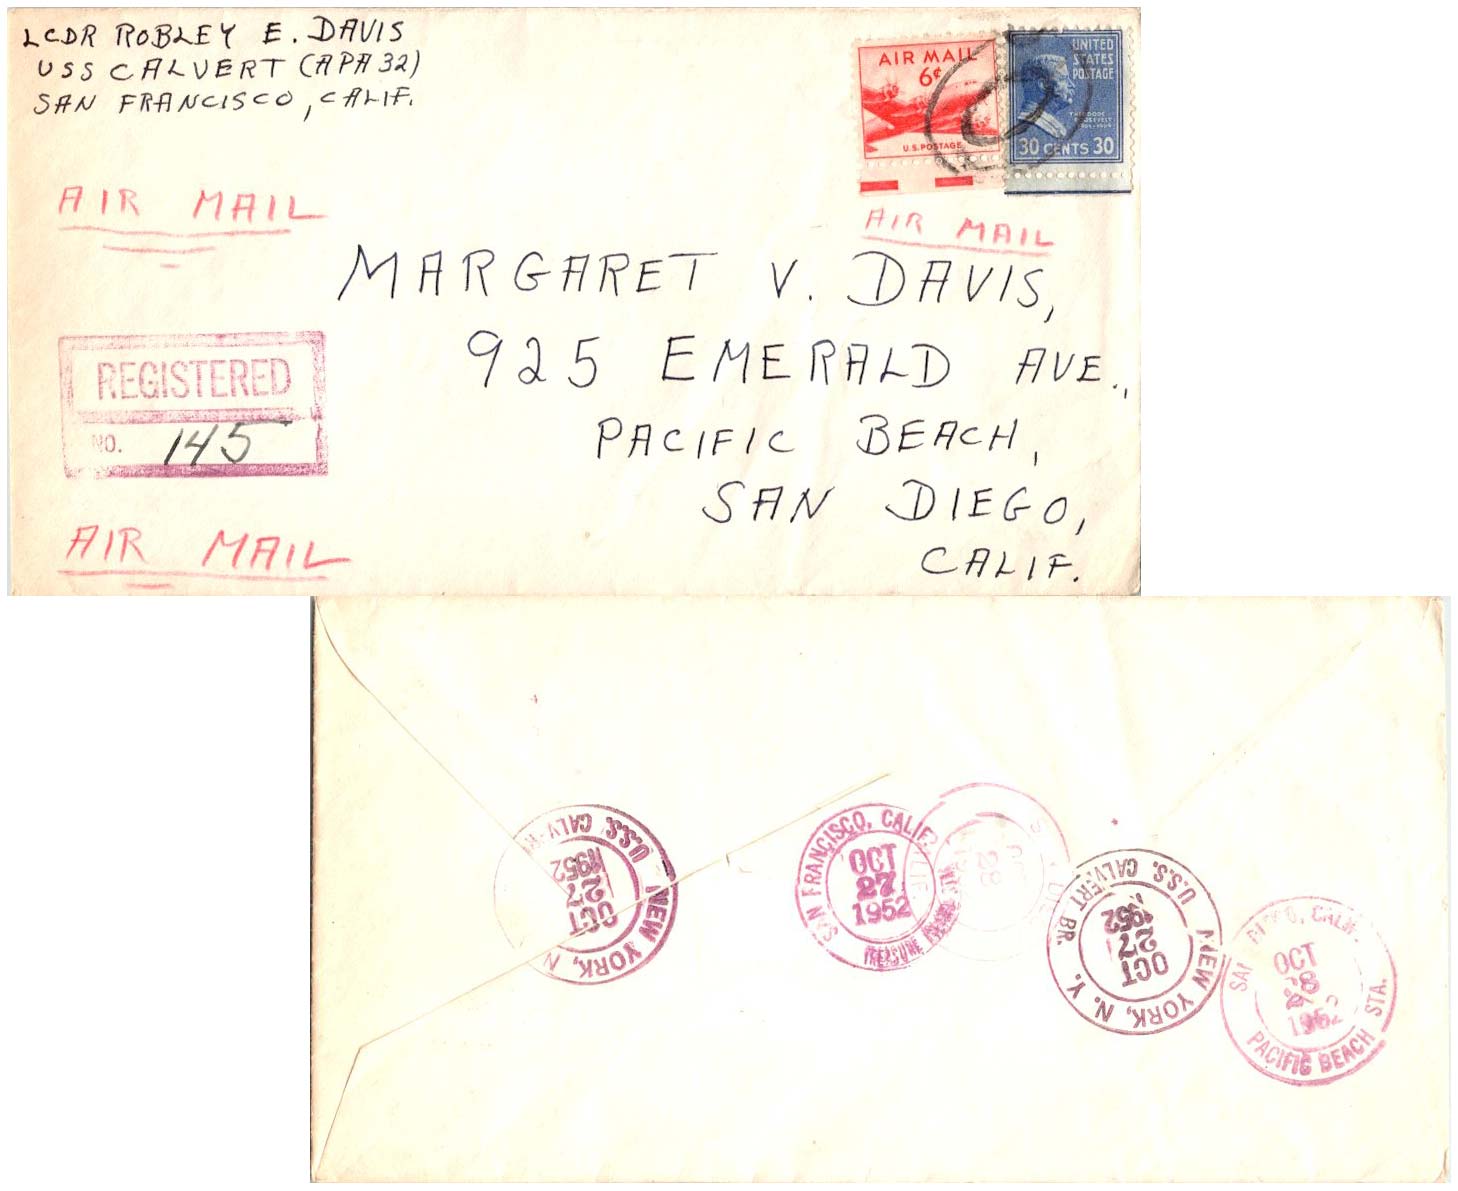 LCDR ROBLEY E. DAVIS
USS CALVERT (APA 32)
SAN FRANCISCO, CALIF.
AIR MAIL
6¢
U.S. POSTAGE
UNITED
STATES
POSTAGE
THEODORE
ROOSEVELT
30 CENTS 30
AIR MAIL
AIR MAIL
MARGARET V. DAVIS,
925 EMERALD AVE.,
PACIFIC BEACH,
SAN DIEGO,
CALIF.
REGISTERED
NO. 145
AIR MAIL
U.S.S. CALV
OCT
27
1952
NEW YORK, N
SAN FRANCISCO, CALIF.
OCT
27
1952
TREASURE
28
U.S.S. CALVERT BR.
OCT
27
1952
NEW YORK, N. Y.
OCT
28
1952
PACIFIC BEACH STA.